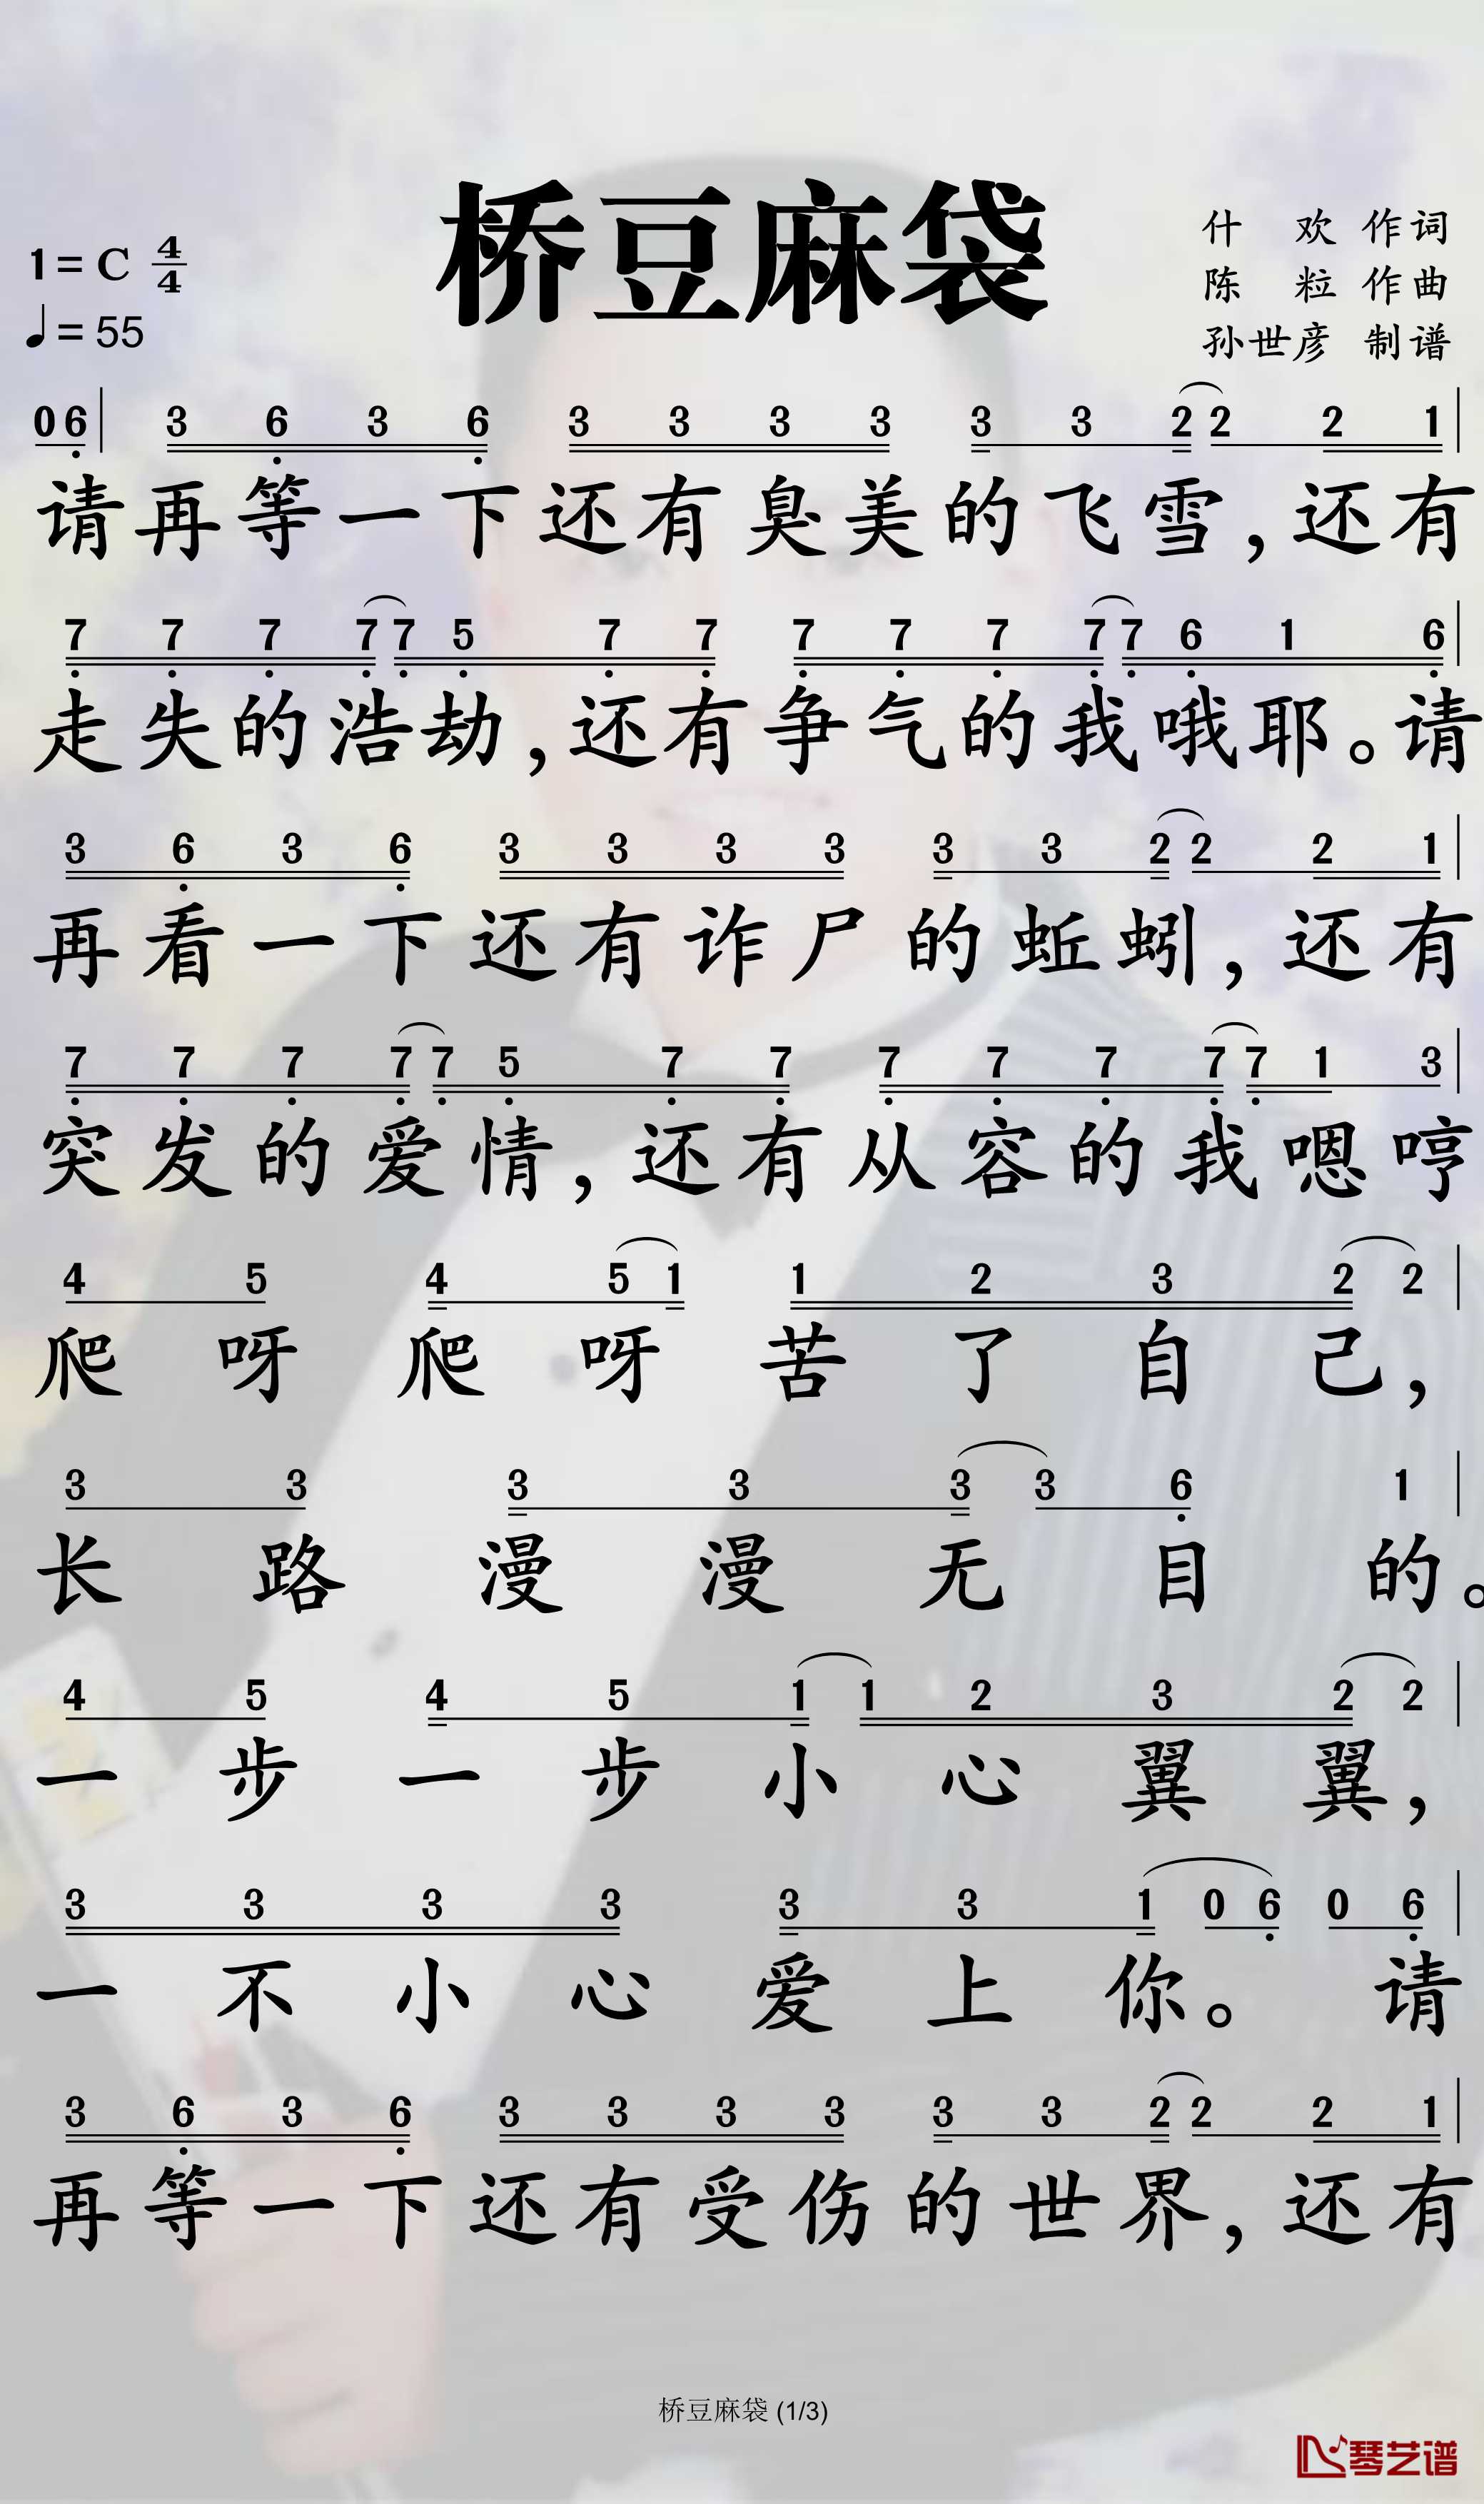 桥豆麻袋
什 欢 作词
陈 粒 作曲
孙世彦 制谱
1=C 4/4
♩=55
0 6 | 3 6 3 6 3 3 3 3 3 3 2 2 2 1 |
请再等一下还有臭美的飞雪,还有
7 7 7 7 7 5 7 7 7 7 7 7 7 6 1 6 |
走失的浩劫,还有争气的我哦耶。请
3 6 3 6 3 3 3 3 3 3 2 2 2 1 |
再看一下还有诈尸的蚯蚓,还有
7 7 7 7 7 5 7 7 7 7 7 7 7 1 3 |
突发的爱情,还有从容的我嗯哼
4 5 4 5 1 1 2 3 2 2 |
爬呀爬呀苦了自己,
3 3 3 3 3 3 6 1 |
长路漫漫无目的。
4 5 4 5 1 1 2 3 2 2 |
一步一步小心翼翼,
3 3 3 3 3 3 1 0 6 0 6 |
一不小心爱上你。请
3 6 3 6 3 3 3 3 3 3 2 2 2 1 |
再等一下还有受伤的世界,还有
桥豆麻袋 (1/3)
琴艺谱